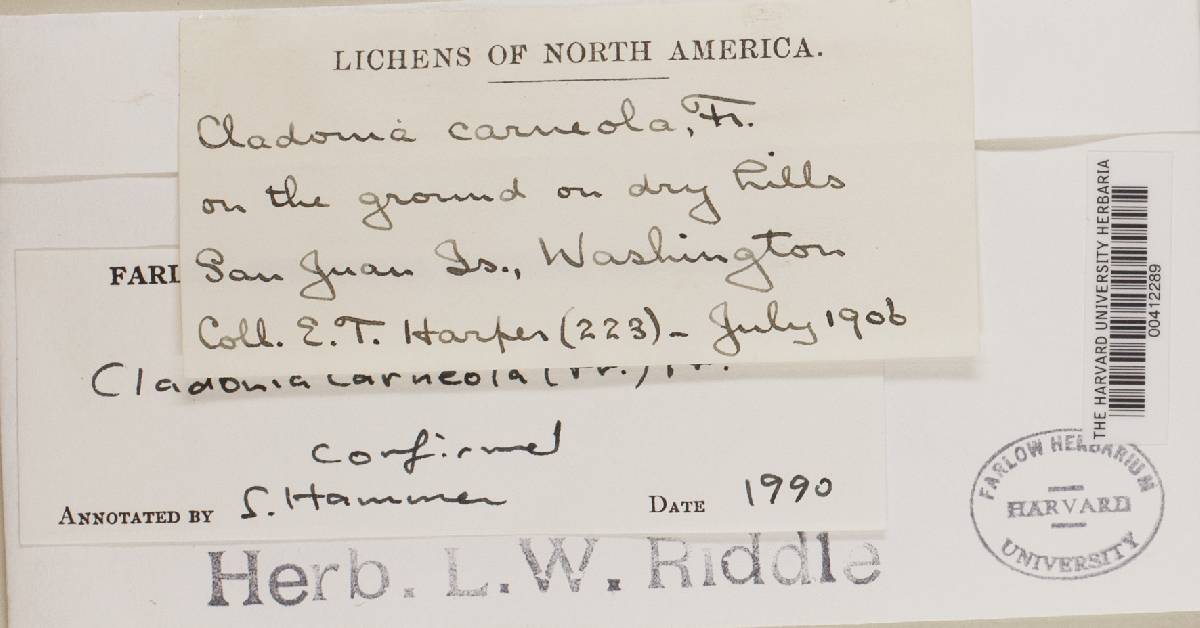 LICHENS OF NORTH AMERICA.
Cladonia carneola, Fr.
on the ground on dry hills
San Juan Is., Washington
Coll. E. T. Harper (223) - July 1906
FARL
Cladonia carneola (Fr.) Fr.
confirmed
ANNOTATED BY S. Hammer DATE 1990
Herb. L. W. Riddle
THE HARVARD UNIVERSITY HERBARIA
00412289
FARLOW HERBARIUM
HARVARD
UNIVERSITY